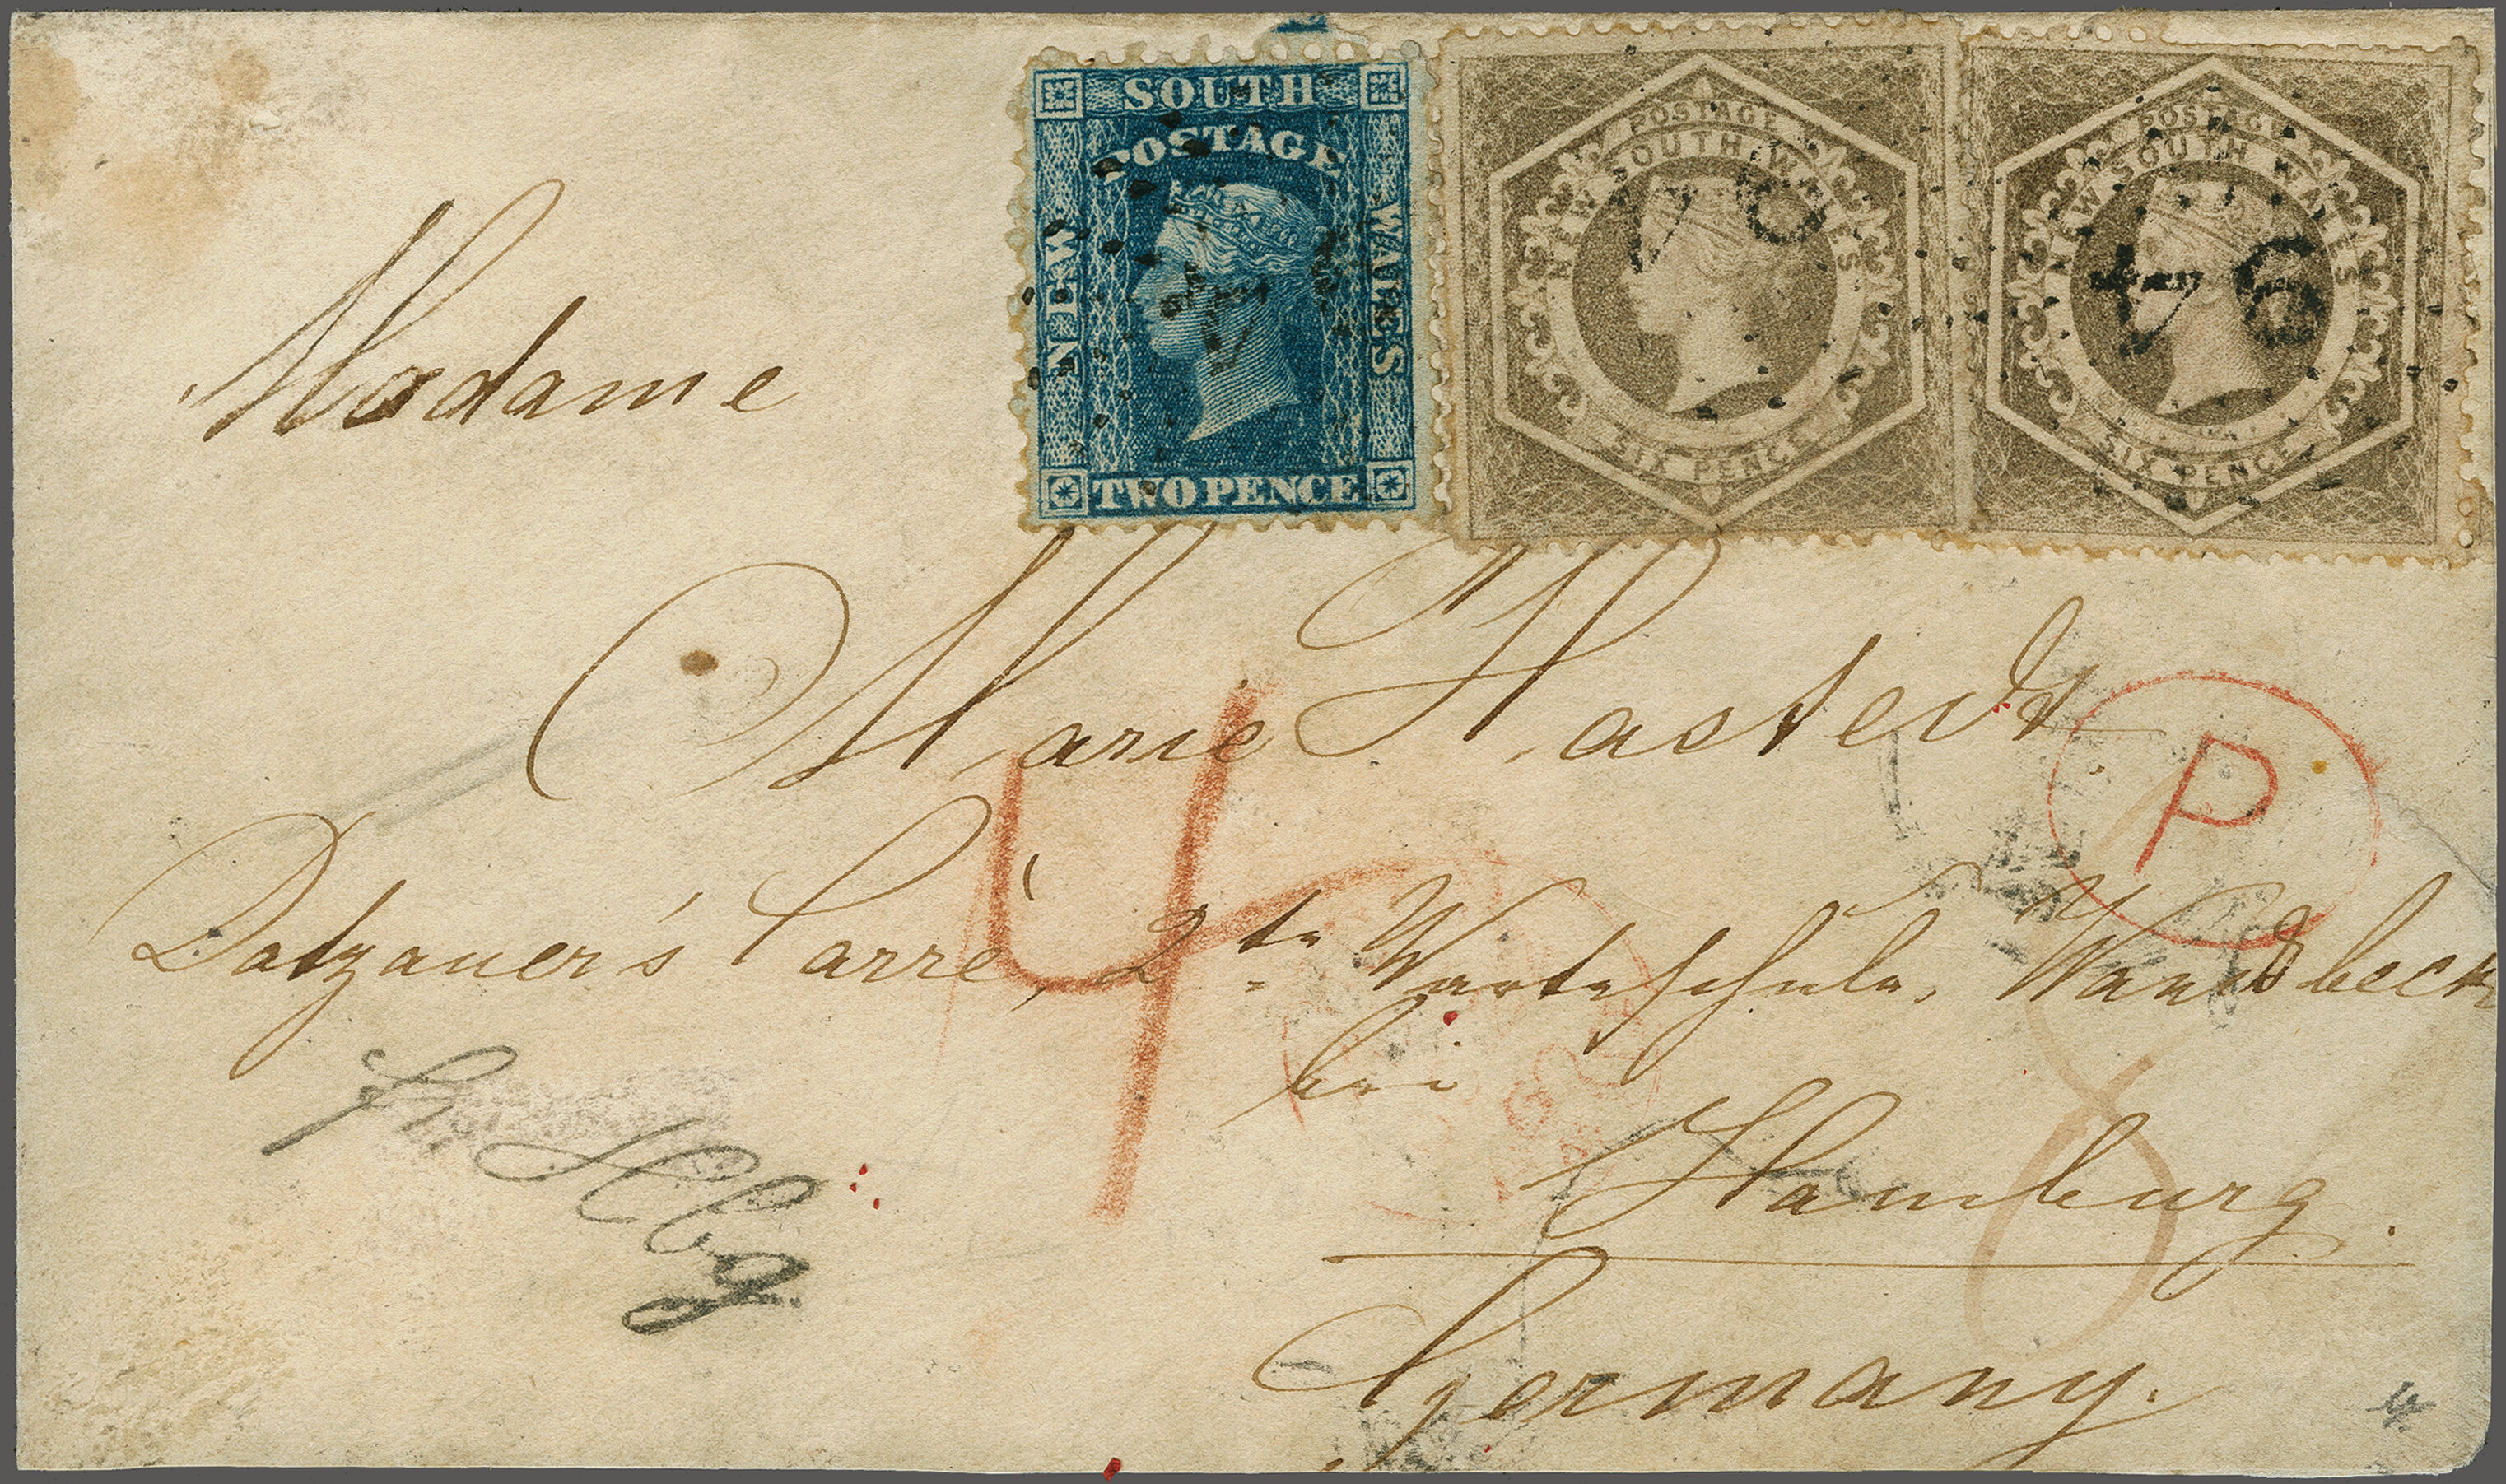 SOUTH
POSTAGE
NEW
WALES
TWO PENCE
POSTAGE
NEW SOUTH WALES
SIX PENCE
POSTAGE
NEW SOUTH WALES
SIX PENCE
Madame
Marie Hastedt
P
4
Datzauer's Carré, 2te Warteschule, Wandsbeck
bei
Hamburg.
8
Germany.